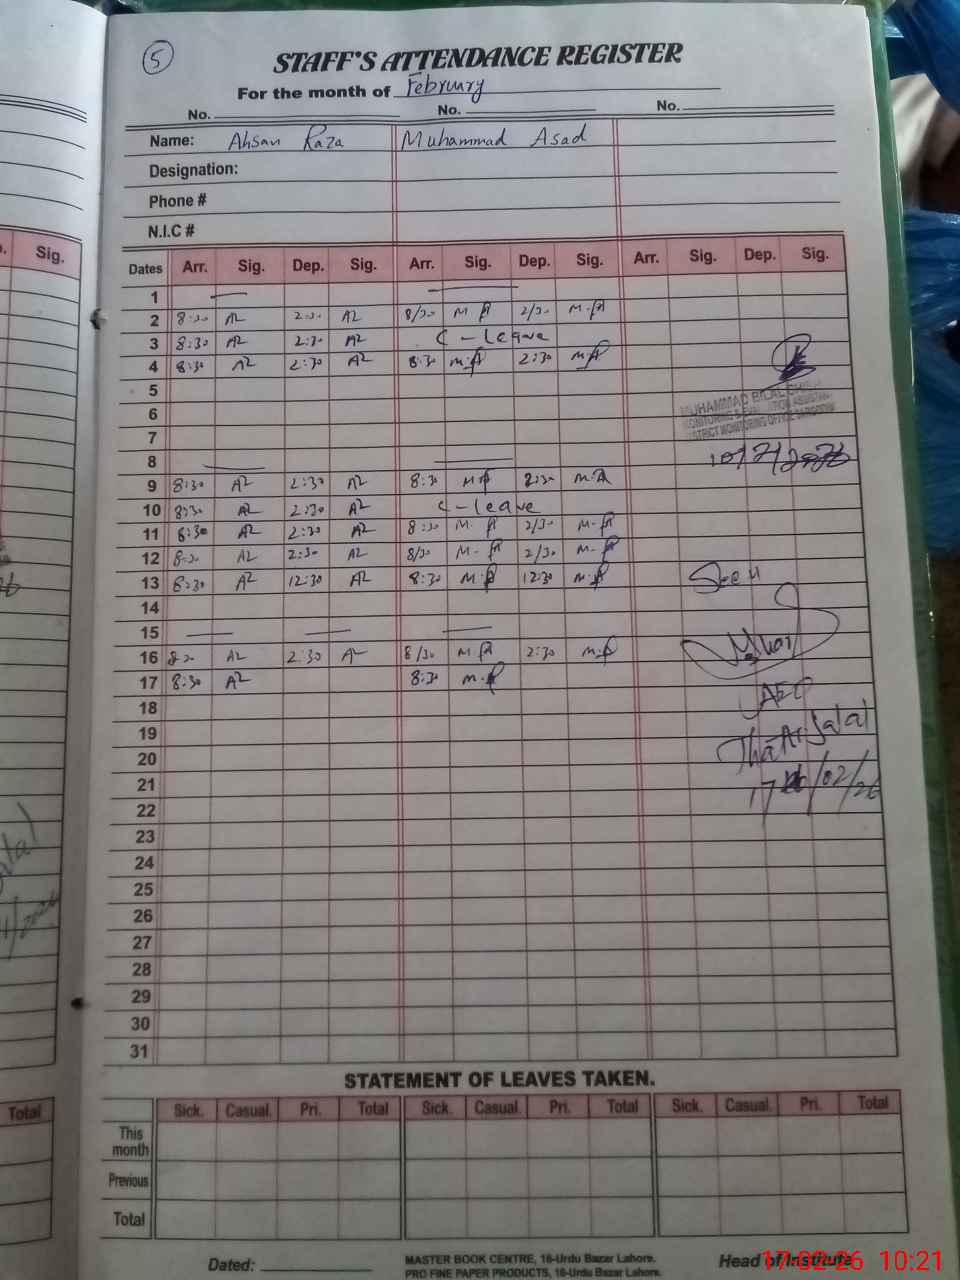 5
STAFF'S ATTENDANCE REGISTER
For the month of February
No. No. No.
Name: Ahsan Raza Muhammad Asad
Designation:
Phone #
N.I.C #
Sig.
Dates Arr. Sig. Dep. Sig. Arr. Sig. Dep. Sig. Arr. Sig. Dep. Sig.
1
2 8:30 2:30 8/30 M.A 2/30 M.A
3 8:30 2:30 C-Leave
4 8:30 2:30 8:30 M.A 2:30 M.A
5
6
MUHAMMAD BILAL
MONITORING & EVALUATION ASSISTANT
DISTRICT MONITORING OFFICE SARGODHA
7
8
10/2/2026
9 8:30 2:30 8:30 M.A 2:30 M.A
10 8:30 2:30 C-leave
11 8:30 2:30 8:30 M.A 2/30 M.A
12 8:30 2:30 8/30 M.A 2/30 M.A
13 8:30 12:30 8:30 M.A 12:30 M.A
Seen
14
15
16 8:30 2:30 8/30 M.A 2:30 M.A
17 8:30 8:30 M.A
AEO
18
19
20
21
17/02/26
22
23
24
25
26
27
28
29
30
31
STATEMENT OF LEAVES TAKEN.
Total
Sick. Casual. Pri. Total Sick. Casual. Pri. Total Sick. Casual. Pri. Total
This month
Previous
Total
Dated:
MASTER BOOK CENTRE, 16-Urdu Bazar Lahore.
PRO FINE PAPER PRODUCTS, 16-Urdu Bazar Lahore.
Head of Institute
17-02-26 10:21